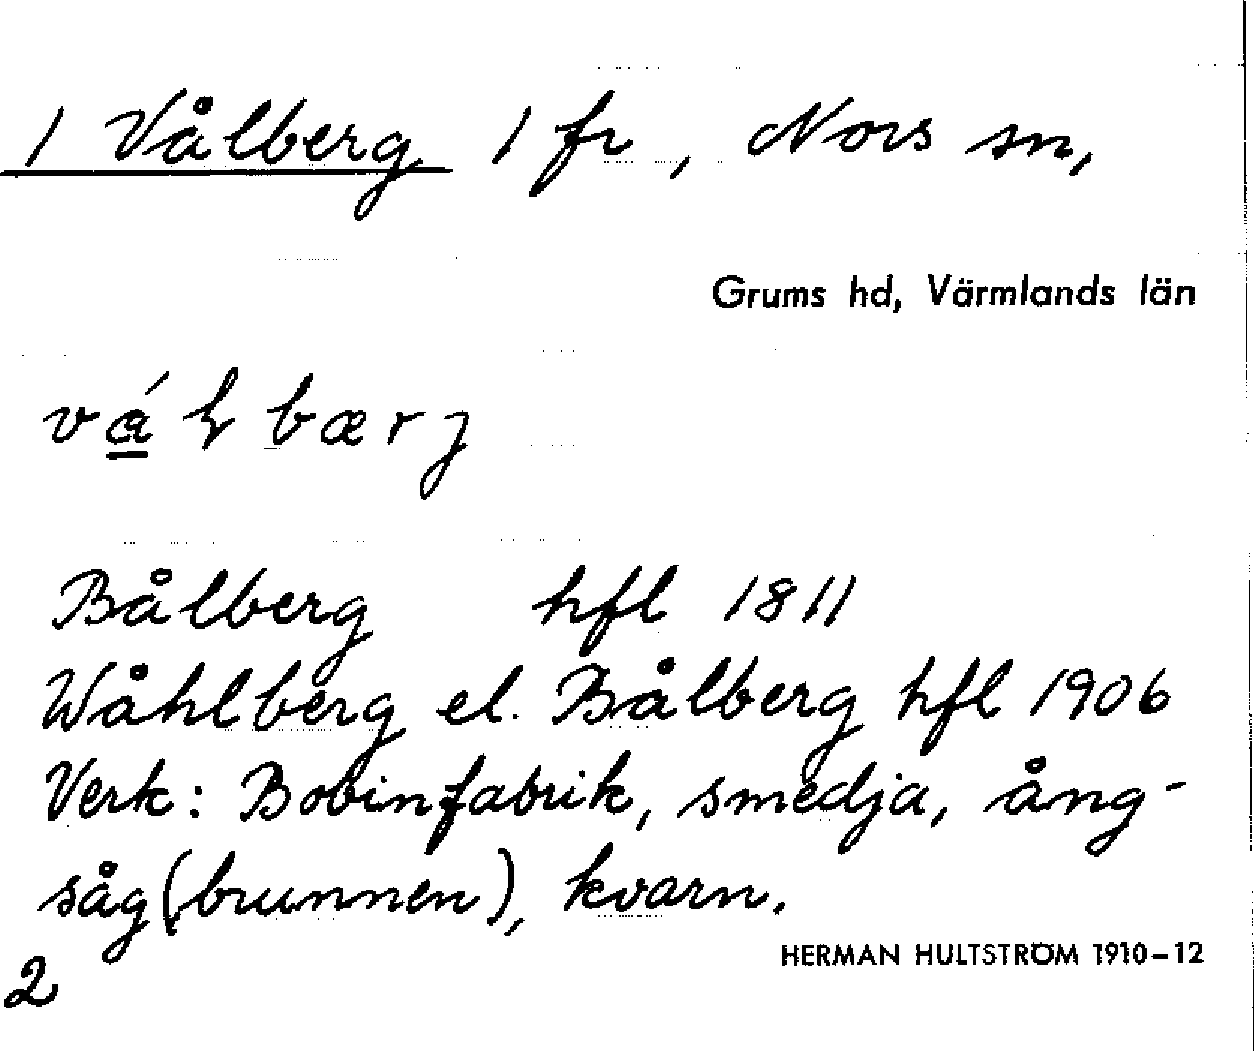 1 Vålberg 1 fr, Nors sn,
Grums hd, Värmlands län
Bålberg hfl 1811
Wåhlberg el. Bålberg hfl 1906
Verk: Bobinfabrik, smedja, ång-
såg (brunnen), kvarn.
HERMAN HULTSTRÖM 1910-12
2